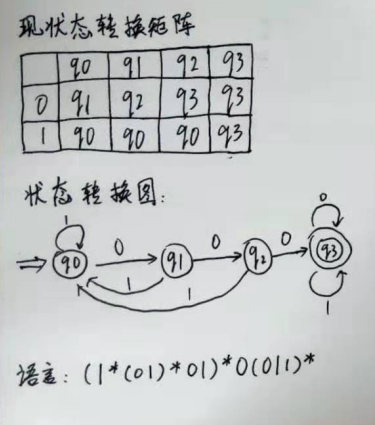 现状态转换矩阵
q0 q1 q2 q3
0 q1 q2 q3 q3
1 q0 q0 q0 q3
状态转换图:
1 0
0 0 0
q0 q1 q2 q3
1 1
1
语言: (1*(01)*01)*0(011)*